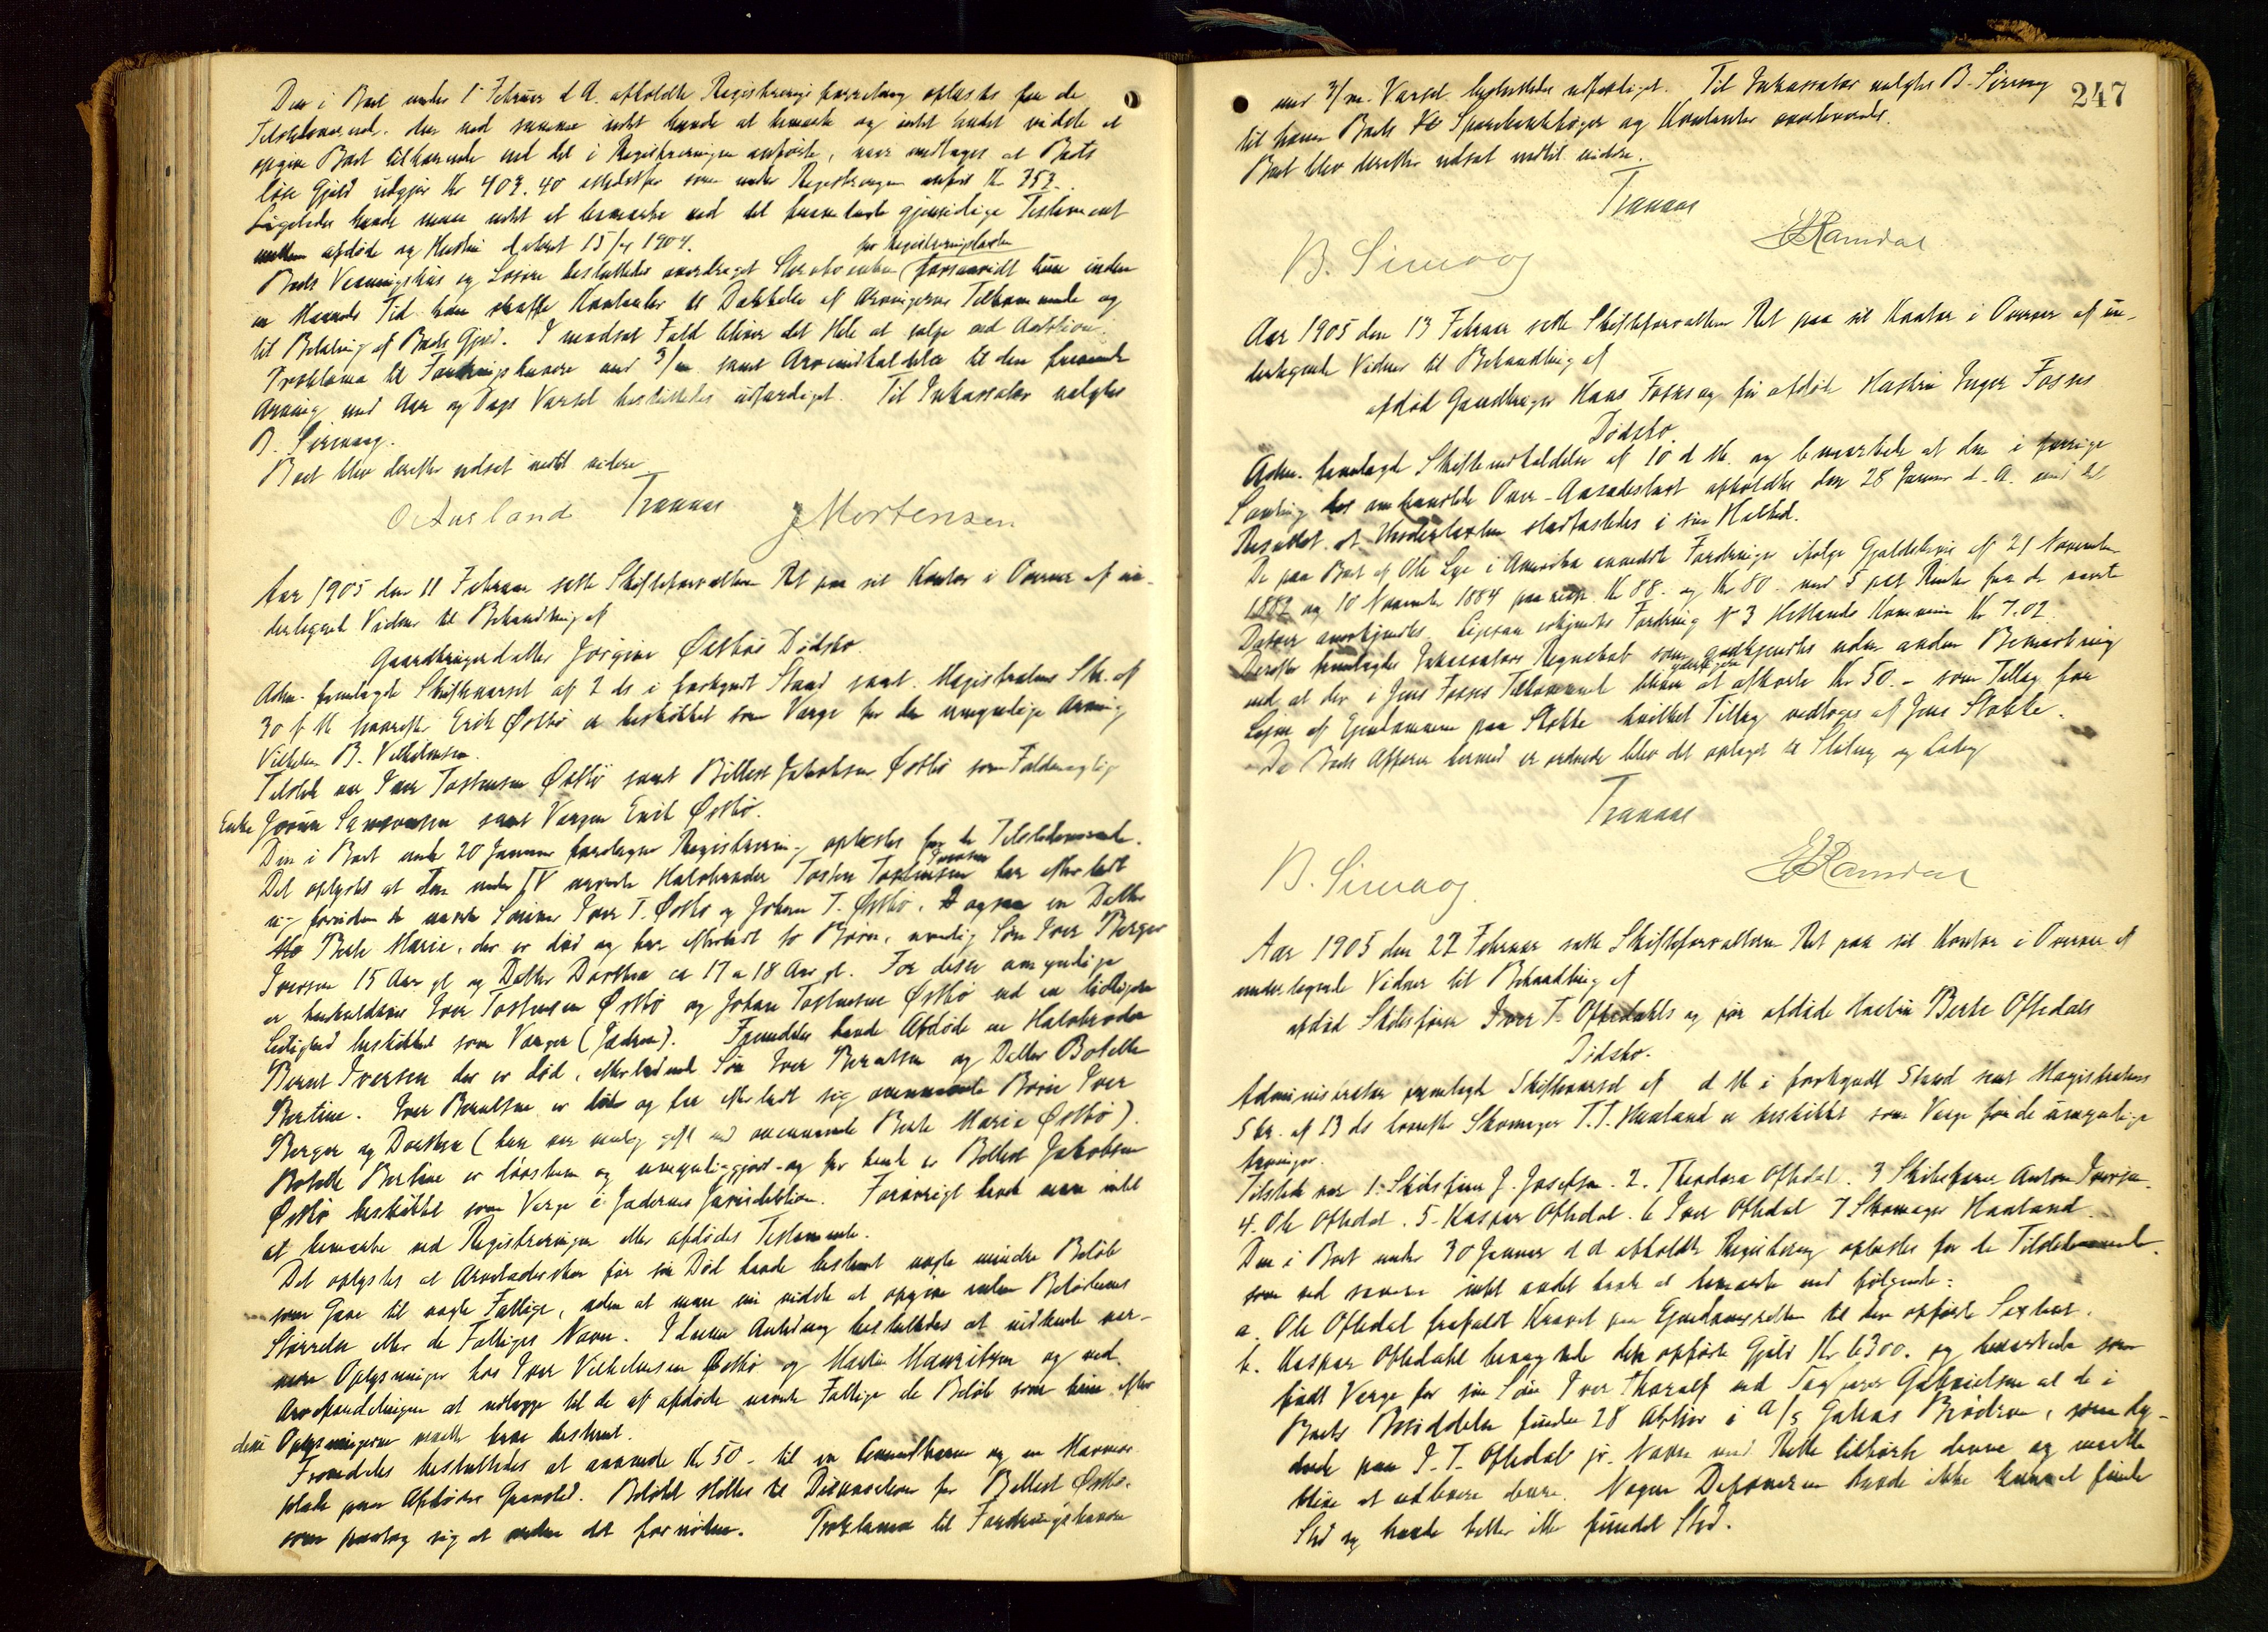 Den i Boet under 1 Februar d A. afholdte Registreringsforretning oplæstes for de
Tilstedeværende. der ved samme intet havde at bemærke og intet andet vidste at
opgive Boet tilhørende end det i Registreringen anførte, men vedtages at Boets
løse Gjæld udgjør Kr 403.40 istedetfor som under Registreringen anført Kr 353.
Ligeledes havde man intet at bemærke ved det fremlagte gjensidige Testament
mellem afdøde og Hustru dateret 15/ 1904.
for Registreringstaxten
Boets Vaaningshus og Løsøre besluttedes overdraget Stervboenken forsaavidt hun inden
en Maaneds Tid kan skaffe Kontanter til Dækkelse af Arvingernes Tilkommende og
til Betaling af Boets Gjæld. I modsat Fald bliver det Hele at sælge ved Auktion.
Proklama til Fordringshavere med 3/m samt Arveindkaldelse til den
Arving med Aar og Dags Varsel besluttedes udfærdiget. Til Inkassator valgtes
B. Sirevaag.
Boet blev derefter udsat indtil videre
O Aarsland Tranaas J Mortensen
Aar 1905 den 11 Februar satte Skifteforvalteren Ret paa sit Kontor i Overvær af un-
dertegnede Vidner til Behandling af
Gaardbrugerdatter Jørgine Østbøs Dødsbo
Adm. fremlagde Skiftevarsel af 2 ds i forkyndt Stand samt Magistratens Skr. af
30 f M hvorefter Erik Østbø er beskikket som Værge for den umyndige Arving
Vilhelm B. Vilhelmsen.
Tilstede var Iver Tostensen Østbø samt Billest Jakobsen Østbø som Fuldmægtig
Enke Samt Værgen Erik Østbø.
Den i Boet under 20 Januar foretagne Registrering oplæstes for de Tilstedeværende.
Det oplystes at den under IV nævnte Halvbroder Tosten Iversen har efterladt
sig foruden de nævnte Sønner Iver T. Østbø og Johan T. Østbø, ogsaa en Datter
Berte Marie, der er død og har efterladt to Børn, nemlig Søn Iver Berger
Iversen 15 Aar gl og Datter Dorthea ca 17 a 18 Aar gl. For disse umyndige
er henholdsvis Iver Tostensen Østbø og Johan Tostensen Østbø ved en tidligere
Leilighed beskikket som Værger (Jædren). Fremdeles havde Afdøde en Halvbroder
Bernt Iversen der er død, efterladende Søn Iver Berntsen og Datter Botelle
Bertine. Iver Berntsen er død og har efterladt sig ovennævnte Børn Iver
Berger og Dorthea (han var nemlig gift med ovennævnte Berte Marie Østbø).
Botelle Bertine er døvstum og umyndiggjort og for hende er Billest Jakobsen
Østbø beskikket som Værge i Jæderens Jurisdiktion. Forøvrigt havde man intet
at bemærke ved Registreringen eller afdødes Testamente.
Det oplystes at Arveladersken før sin Død havde bestemt nogle mindre Beløb
som Gave til nogle Fattige, uden at man nu vidste at opgive enten Beløbenes
Størrelse eller de Fattiges Navn. I denne Anledning besluttedes at indhente nær-
mere Oplysninger hos Iver Vilhelmsen Østbø og Martin Mauritzen og ved
Arvefordelingen at udlægge til de af afdøde nævnte Fattige de Beløb som hun efter
disse Oplysningerne maatte have bestemt.
Fremdeles besluttedes at anvende Kr 50.- til en og en Marmor
plade paa Afdødes Gravsted. Beløbet stilles til Disposition for Billest Østbø.
som paatog sig at ordne det fornødne. Proklama til Fordringshavere
247
med 3/m. Varsel besluttedes udfærdiget. Til Inkassator valgtes B. Sirevaag
til hvem Boets Sparebankbøger og Kontanter overleveredes.
Boet blev derefter udsat indtil videre.
Tranaas
B. Sirevaag E Ramdal
Aar 1905 den 13 Februar satte Skifteforvalteren Ret paa sit Kontor i Overvær af un-
dertegnede Vidner til Behandling af
afdød Gaardbruger Hans Fosses og før afdøde Hustru Inger Fosses
Dødsbo.
Adm. fremlagde Skifteindkaldelse af 10 d M. og bemærkede at den i forrige
Samling omhandlede Over-Aasædestaxt afholdtes den 28 Januar d. A. med det
Resultat at Undertaxten stadfæstedes i sin Helhed.
De paa Boet af Ole Lye i Amerika anmeldte Fordringer ifølge Gjældsbevis af 21 November
1882 og 10 November 1884 paa resp. Kr 88.- og Kr 80 med 5 pct Renter fra de nævnte
Datoer anerkjendtes. Ligesaa erkjendtes Fordring N 3 Hetlands Kommune Kr 7.02
Derefter fremlagdes Inkassators Regnskab som godkjendtes uden anden Bemærkning
end at der i Jens Fosses Tilkommende bliver yderligere at afkorte Kr 50.- som Tillæg for
Leien af Ejendommen paa Stokke hvilket Tillæg vedtoges af Jens Stokke.
Da Boets Affærer hermed er ordnede blev det optaget til Slutning og Lodning
Tranaas
B. Sirevaag. E Ramdal
Aar 1905 den 22 Februar satte Skifteforvalteren Ret paa sit Kontor i Overvær af
undertegnede Vidner til Behandling af
afdød Skibsfører Iver T. Oftedahls og før afdøde Hustru Berte Oftedals
Dødsbo.
Administrator fremlagde Skiftevarsel af d M i forkyndt Stand samt Magistratens
Skr. af 13 ds hvorefter Skomager T. T. Haaland er beskikket som Værge for de umyndige
Arvinger.
Tilstede var 1. Skibsfører J. Josefsen. 2. Theodora Oftedal. 3 Skibsfører Anton Iversen.
4. Ole Oftedal. 5. Kaspar Oftedal. 6 Iver Oftedal 7 Skomager Haaland
Den i Boet under 30 Januar d A afholdte Registrering oplæstes for de Tilstedeværende.
som ved samme intet andet havde at bemærke end følgende:
a. Ole Oftedal frafaldt Kravet paa Ejendomsretten til den opførte Sextant.
b. Kaspar Oftedahl benægtede den opførte Gjæld Kr 6300. og bemærkede som
født Værge for sin Søn Iver Thoralf ved Sagfører Gabrielsen at de i
Boets Besiddelse fundne 28 Aktier i A/S Gabas Brødre, som ly-
dende paa I. T. Oftedal jr. Navn med Rette tilhørte denne og maatte
blive at udlevere denne. Nogen Deponeren havde ikke kunnet finde
Sted og havde heller ikke fundet Sted.